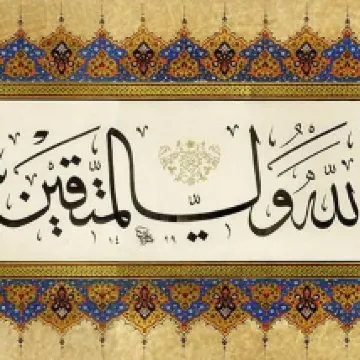 الله ولي المتقين